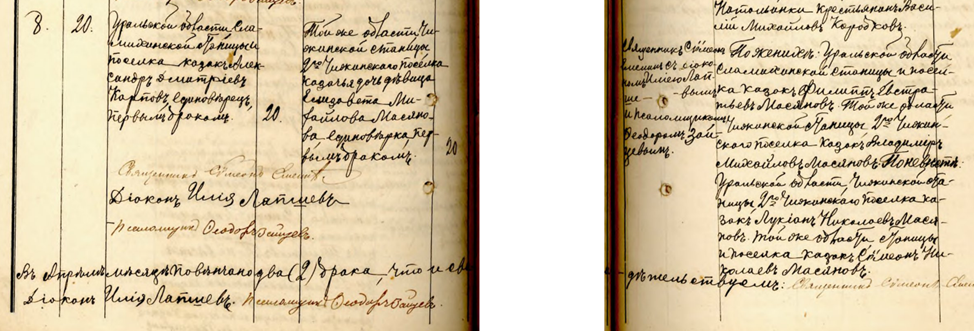 8. 20. Уральской области Сла-
михинской станицы
поселка казакъ Алек-
сандръ Дмитріевъ
Карповъ единоверецъ,
первымъ бракомъ.
20.
Той же области Чи-
жинской станицы
2го Чижинскаго поселка
казачья дочь девица
Елизавета Ми-
хайлова Масяно-
ва единоверка, пер-
вымъ бракомъ.
20
Священникъ Сѵмеонъ
Діаконъ Илія Лапшевъ
Псаломщикъ Ѳеодоръ Зайцевъ.
Въ Апреле месяце повенчано два (2) брака, что и сви-
Діаконъ Илія Лапшевъ. Псаломщикъ Ѳеодоръ Зайцевъ.
Натольинки крестьянинъ Васи-
лій Михайловъ Коробковъ.
Священникъ Сѵмеонъ
съ діако-
номъ Иліею Лап-
ше- вымъ
и псаломщикомъ
Ѳеодоромъ Зай-
цевымъ.
По женихе: Уральской области
Сламихинской станицы и посел-
ка казакъ Филиппъ Евстра-
тьевъ Масяновъ. Той же области
Чижинской станицы 2го Чижин-
скаго поселка казакъ Владиміръ
Михайловъ Масяновъ. По невесте:
Уральской области Чижинской ста-
ницы 2го Чижинскаго поселка ка-
закъ Лукіанъ Николаевъ Мася-
новъ. Той же области станицы
и поселка казакъ Сѵмеонъ Ни-
колаевъ Масяновъ.
детельствуемъ: Священникъ Сѵмеонъ